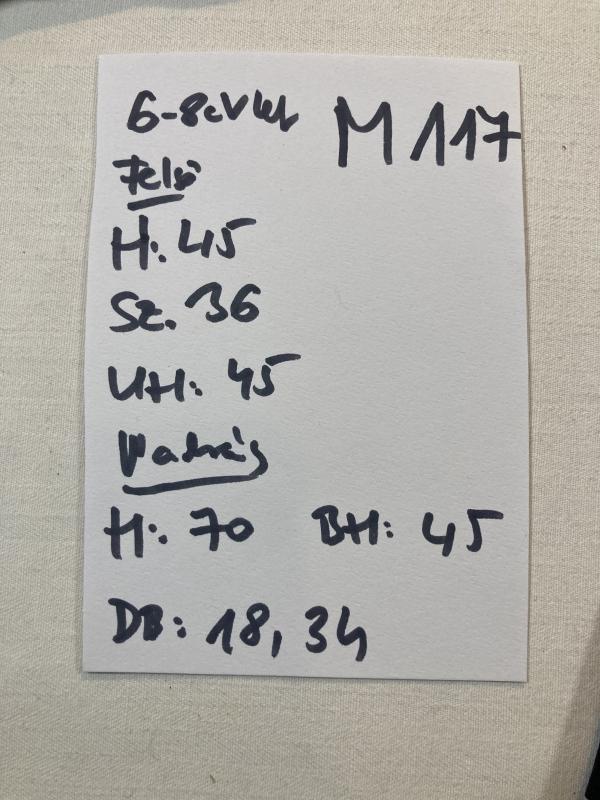 6-8évles M117
Felső
H: 45
Sz. 36
UH: 45
Nadrág
H: 70 BH: 45
DB: 18, 34